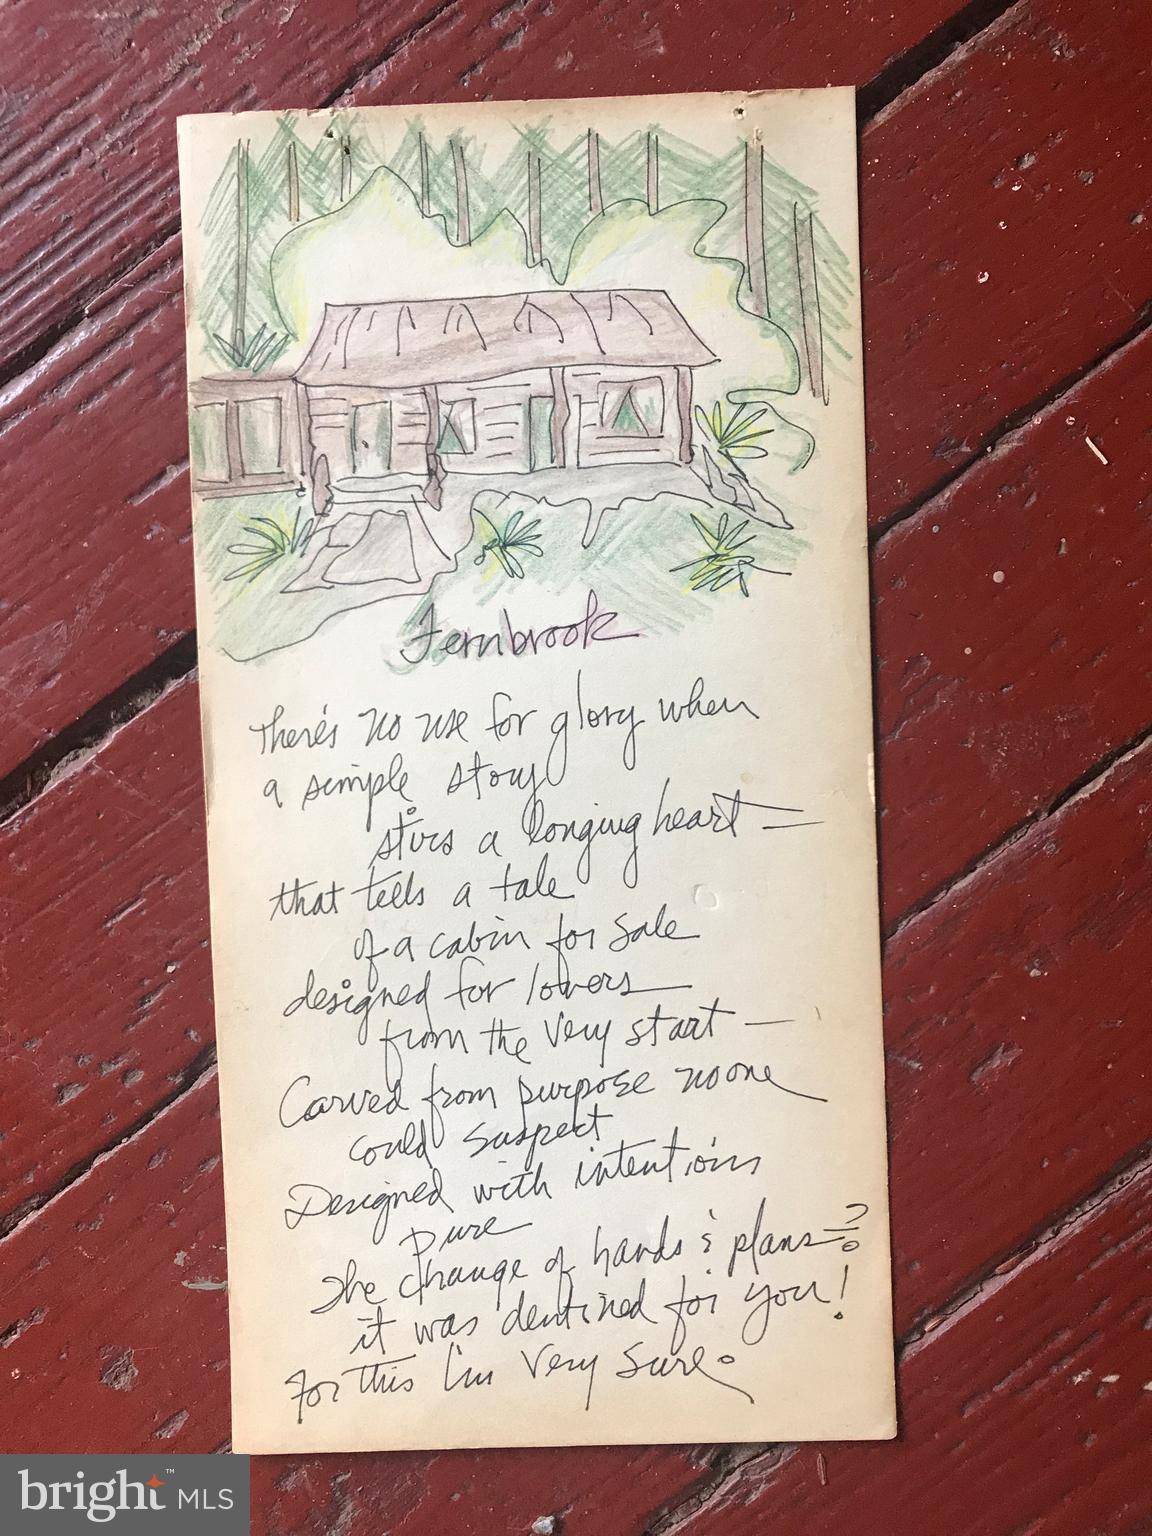 Fernbrook
There's no use for glory when
a simple story
stirs a longing heart —
that tells a tale
of a cabin for sale
designed for lovers
from the very start —
Carved from purpose no one
could suspect
Designed with intentions
pure
The change of hands & plans — ?
it was destined for you!
For this I'm very sure.
bright™ MLS